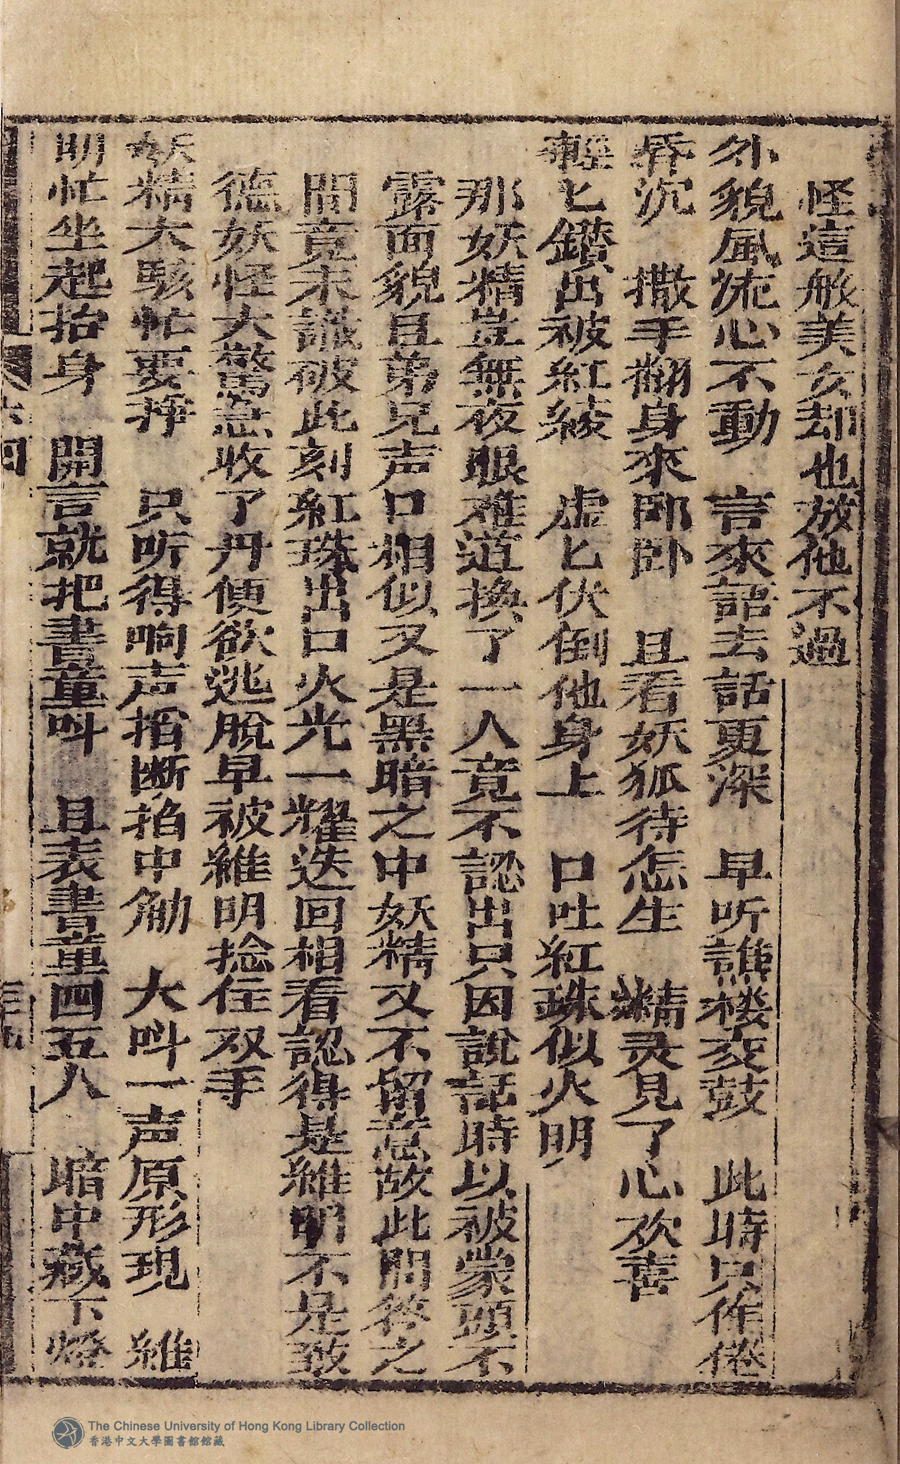 怪這般美女却也放他不過
外貌風流心不動　言來語去話更深　早听譙楼交鼓　此時只作倦
昏沉　撒手翻身來卽卧　且看妖狐待怎生　精灵見了心欢喜
輕匕鑚出被紅綾　虛匕伏倒他身上　口吐紅珠似火明
那妖精豈無夜眼难道換了一人竟不認出只因說話時以被蒙頭不
露面貌且弟兄声口相似又是黑暗之中妖精又不留意故此問答之
間竟未識破此刻紅珠出口火光一耀迭囬相看認得是維明不是致
德妖怪大驚急收了丹便欲逃脫早被維明捻住双手
妖精大駭忙要挣　只听得响声指断掐中觔　大呌一声原形現　維
明忙坐起抬身　開言就把書童呌　且表書童四五人　暗中藏下燈
The Chinese University of Hong Kong Library Collection
香港中文大學圖書館館藏